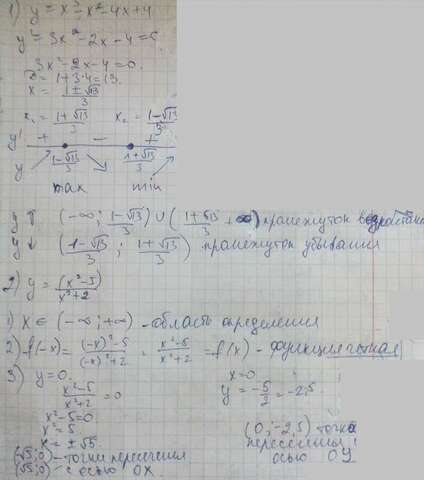 1) y = x³ - x² - 4x + 4
y' = 3x² - 2x - 4 = 0
3x² - 2x - 4 = 0.
D = 1 + 3·4 = 13.
x = (1 ± √13)/3
x₁ = (1 + √13)/3   x₂ = (1 - √13)/3
y' + - +
y (1 - √13)/3 (1 + √13)/3
max min
y ↑ (-∞; (1 - √13)/3) ∪ ((1 + √13)/3; +∞) промежуток возрастан
y ↓ ((1 - √13)/3; (1 + √13)/3) промежуток убывания
2) y = (x² - 5)/(x² + 2)
1) x ∈ (-∞; +∞) - область определения
2) f(-x) = ((-x)² - 5)/((-x)² + 2) = (x² - 5)/(x² + 2) = f(x) - функция четная
3) y = 0,
(x² - 5)/(x² + 2) = 0
x² - 5 = 0
x² = 5
x = ± √5
(-√5; 0) - точки пересечения
(√5; 0) - с осью OX.
x = 0
y = -5/2 = -2,5
(0; -2,5) точка
пересечения с
осью OY